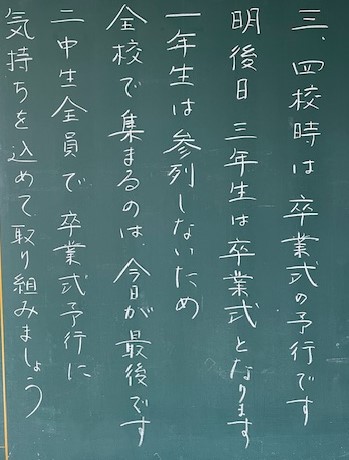 三、四校時は卒業式の予行です
明後日三年生は卒業式となります
一年生は参列しないため
全校で集まるのは、今日が最後です
二中生全員で卒業式予行に
気持ちを込めて取り組みましょう